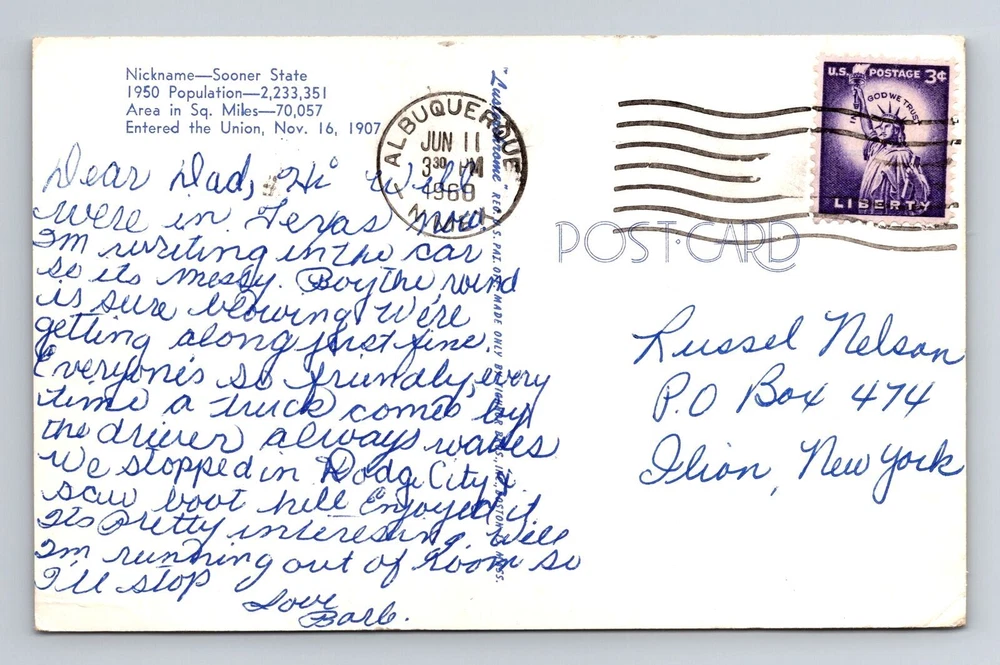 Nickname—Sooner State
1950 Population—2,233,351
Area in Sq. Miles—70,057
Entered the Union, Nov. 16, 1907
Dear Dad, Hi Well
were in Texas now.
I'm writing in the car
so its messy. Boy the wind
is sure blowing. We're
getting along just fine.
Everyone's so friendly, every
time a truck comes by
the driver always waves
We stopped in Dodge City &
saw boot hill Enjoyed it.
Its Pretty interesting. Well
I'm running out of Room so
I'll stop
Love
Barb.
"Lusterchrome" REG. U.S. PAT. OFF. MADE ONLY BY TICHNOR BROS., INC., BOSTON, MASS.
ALBUQUERQUE
JUN 11
3 30 PM
1960
N. MEX.
1
U.S. POSTAGE 3¢
IN GOD WE TRUST
LIBERTY
POST CARD
Russel Nelson
P.O Box 474
Ilion, New York